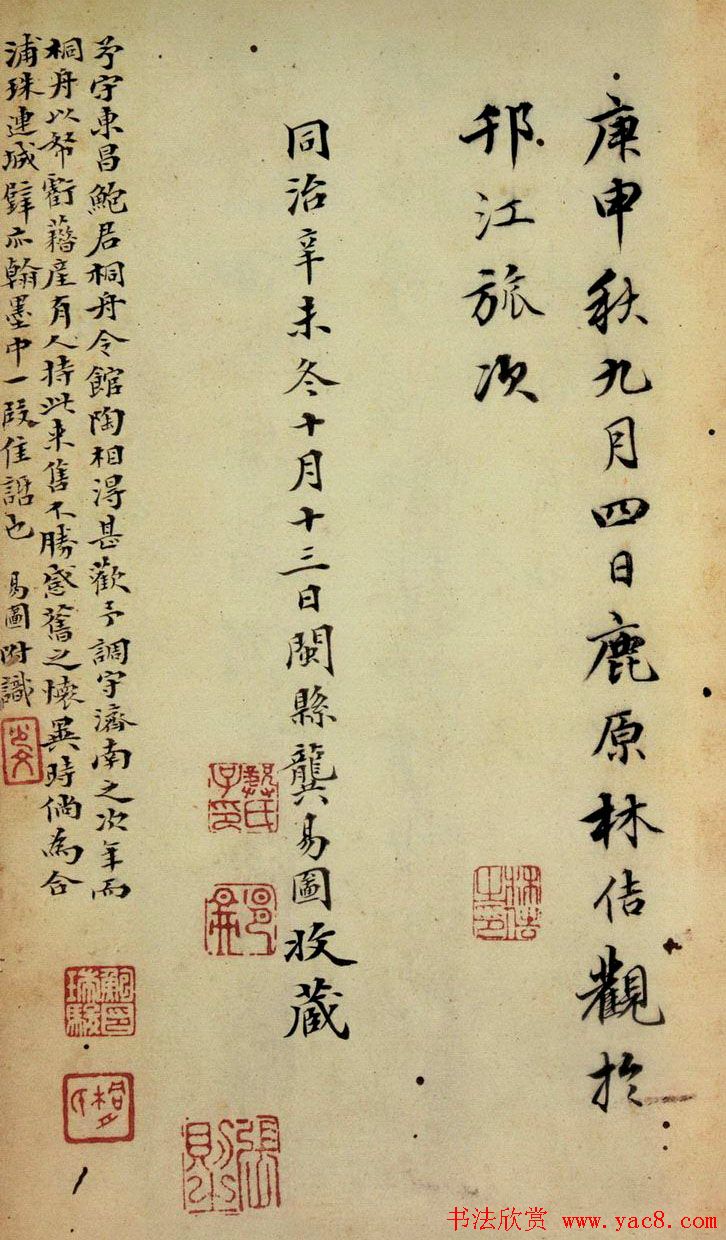 庚申秋九月四日鹿原林佶觀於
邗江旅次
同治辛未冬十月十三日閩縣龔易圖收藏
予守東昌鮑君桐舟令館陶相得甚歡予調守濟南之次年而
桐舟以帑虧藉產有人持此來售不勝感舊之懷異時倘為合
浦珠連城璧亦翰墨中一段佳話也 易圖附識
林佶之印
書法欣赏 www.yac8.com